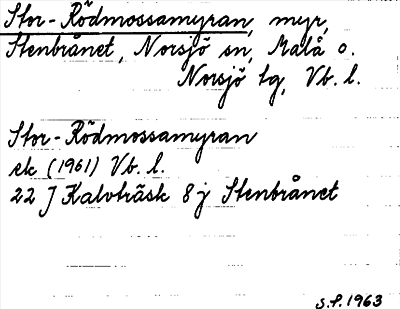 Stor-Rödmossamyran, myr,
Stenbrånet, Norsjö sn, Malå o.
Norsjö tg, Vb. l.
Stor-Rödmossamyran
ek (1961) Vb. l.
22 J Kalvträsk 8 j Stenbrånet
S.P. 1963